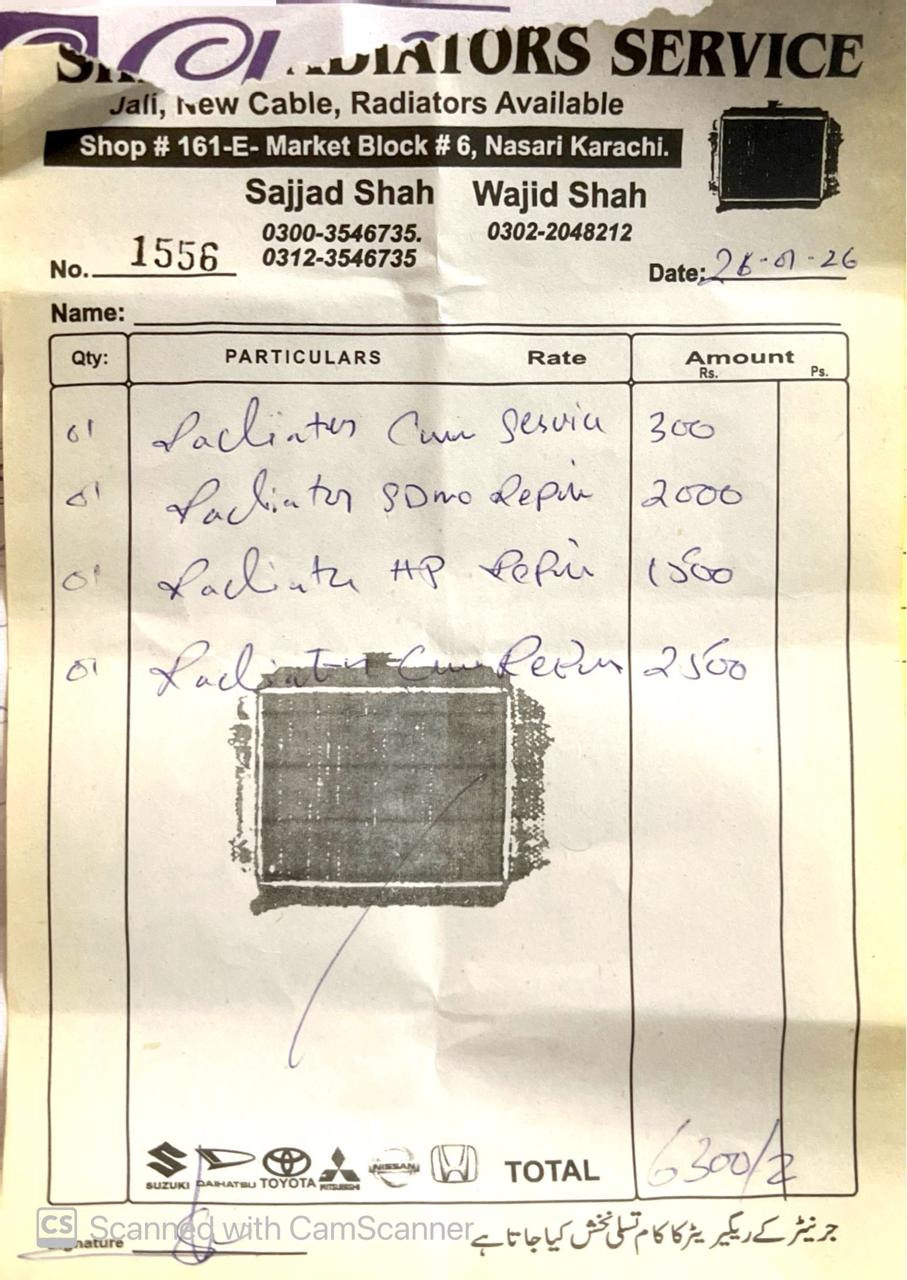 RADIATORS SERVICE
Jali, New Cable, Radiators Available
Shop # 161-E- Market Block # 6, Nasari Karachi.
Sajjad Shah Wajid Shah
0300-3546735. 0302-2048212
0312-3546735
No. 1556 Date: 26-01-26
Name:
Qty: PARTICULARS Rate Amount
Rs. Ps.
01 Radiator Cum Servic 300
01 Radiator Repir 2000
01 Radiator HP Repir 1500
01 Radiator Cum Repir 2500
SUZUKI DAIHATSU TOYOTA MITSUBISHI NISSAN TOTAL 6300/2
جرنیٹر کے ریگیریٹر کا کام تسلی بخش کیا جاتا ہے
CS Scanned with CamScanner
Signature